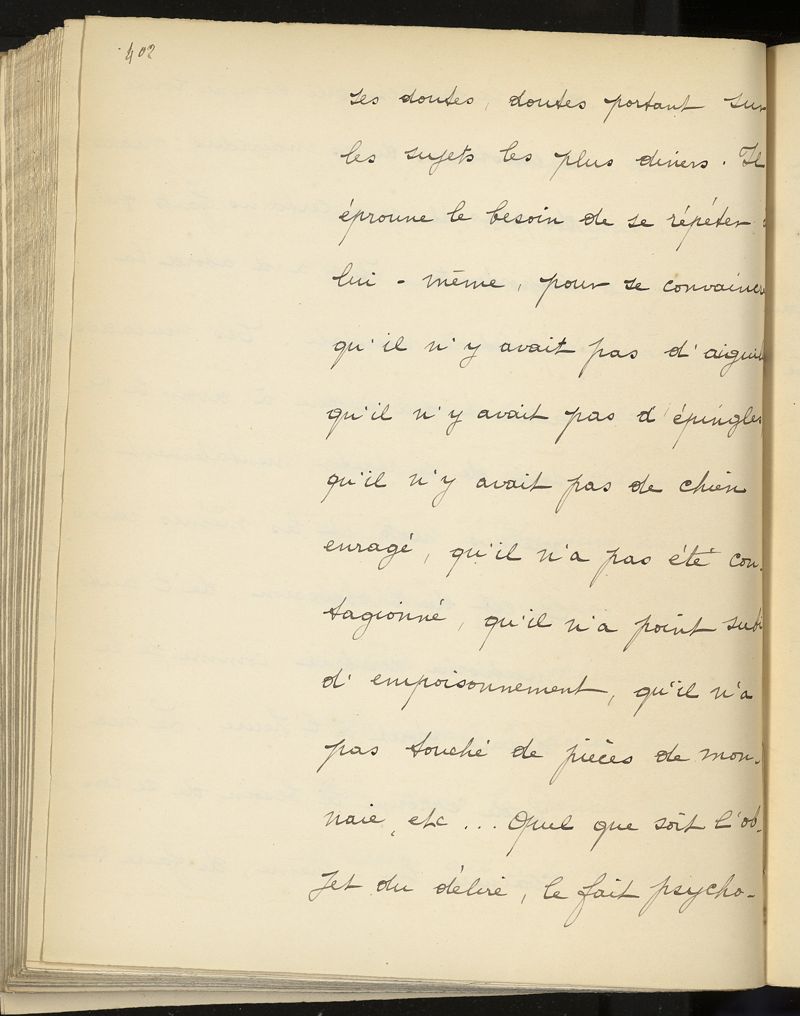 402
ses doutes, doutes portant sur
les sujets les plus divers. Il
éprouve le besoin de se répéter
lui-même, pour se convaincre
qu'il n'y avait pas d'aiguill
qu'il n'y avait pas d'épingles
qu'il n'y avait pas de chien
enragé, qu'il n'a pas été con-
tagionné, qu'il n'a point subi
d'empoisonnement, qu'il n'a
pas touché de pièces de mon-
naie, etc... Quel que soit l'ob-
jet du délire, le fait psycho-